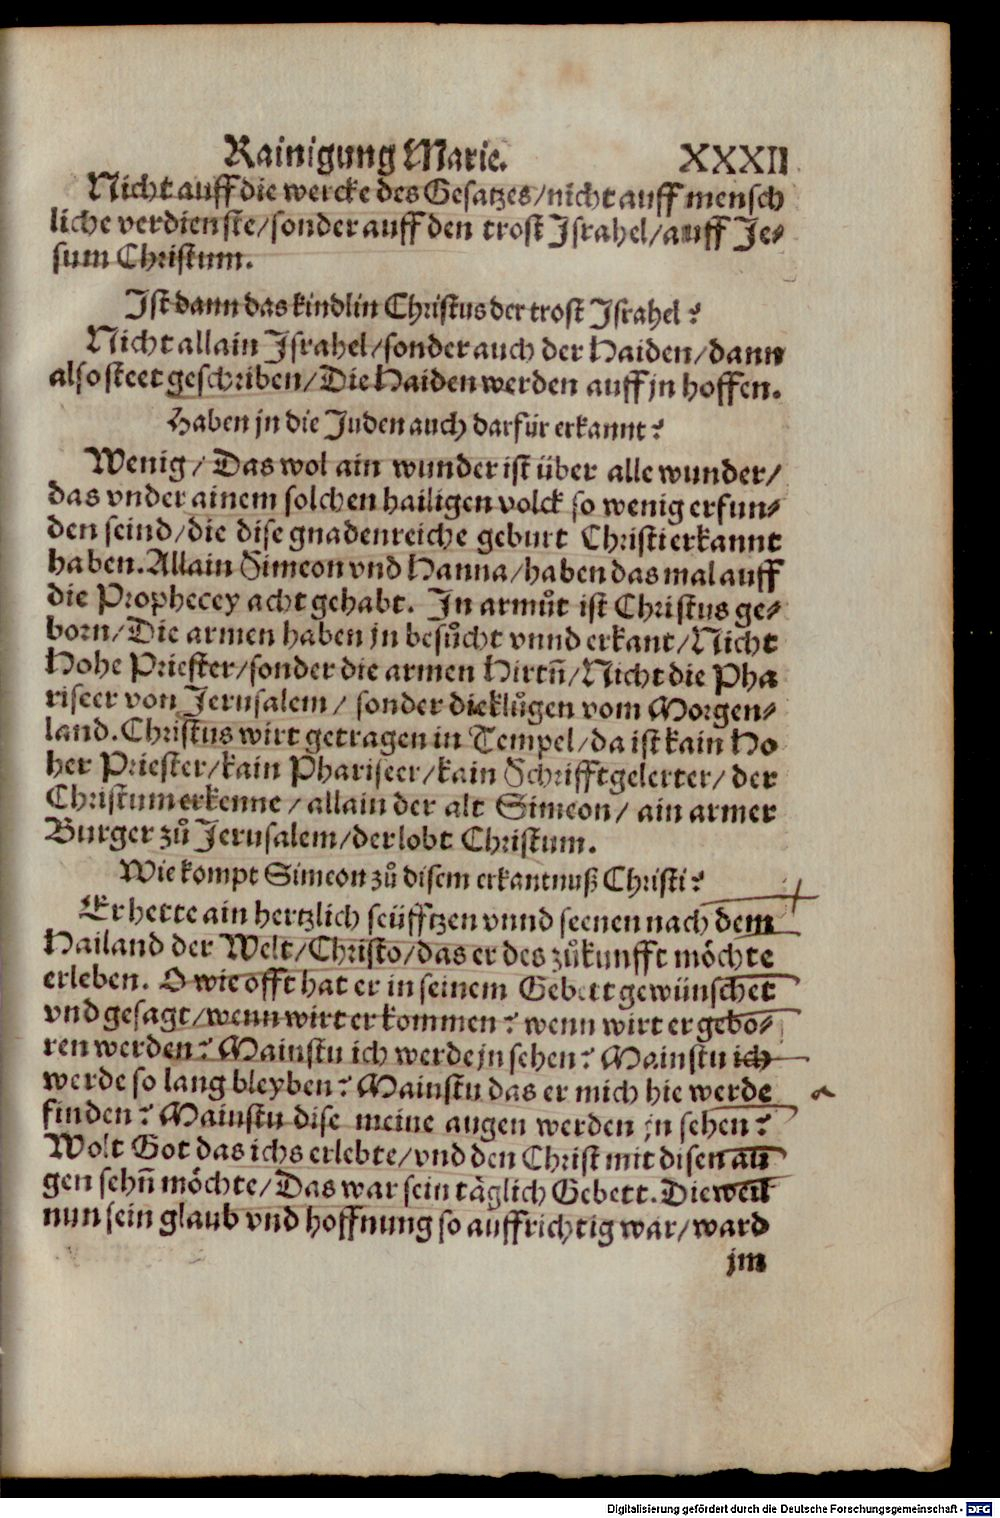 Rainigung Marie. XXXII
Nicht auff die wercke des Gesatzes/nicht auff mensch
liche verdienste/sonder auff den trost Israhel/auff Je⸗
sum Christum.
Ist dann das kindlin Christus der trost Israhel?
Nicht allain Israhel/sonder auch der Haiden/dann
also steet geschriben/Die Haiden werden auff jn hoffen.
Haben jn die Juden auch darfür erkannt?
Wenig/Das wol ain wunder ist über alle wunder/
das vnder ainem solchen hailigen volck so wenig erfun⸗
den seind/die dise gnadenreiche geburt Christi erkannt
haben. Allain Simeon vnd Hanna/haben das mal auff
die Prophecey acht gehabt. In armůt ist Christus ge⸗
born/Die armen haben jn besůcht vnnd erkant/Nicht
Hohe Priester/sonder die armen Hirtn̄/Nicht die Pha
riseer von Jerusalem/ sonder die klůgen vom Morgen⸗
land. Christus wirt getragen in Tempel/da ist kain Ho
her Priester/kain Phariseer/kain Schrifftgelerter/ der
Christum erkenne/allain der alt Simeon/ ain armer
Burger zů Jerusalem/der lobt Christum.
Wie kompt Simeon zů disem erkantnuß Christi?
Er hette ain hertzlich seüfftzen vnnd seenen nach dem
Hailand der Welt/Christo/das er des zůkunfft möchte
erleben. O wie offt hat er in seinem Gebett gewünschet
vnd gesagt/wenn wirt er kommen? wenn wirt er gebo⸗
ren werden? Mainstu ich werde jn sehen? Mainstu ich
werde so lang bleyben? Mainstu das er mich hie werde
finden? Mainstu dise meine augen werden jn sehen?
Wolt Got das ichs erlebte/vnd den Christ mit disen au
gen sehn̄ möchte/Das war sein täglich Gebett. Die weil
nun sein glaub vnd hoffnung so auffrichtig war/ward
jm
Digitalisierung gefördert durch die Deutsche Forschungsgemeinschaft - DFG